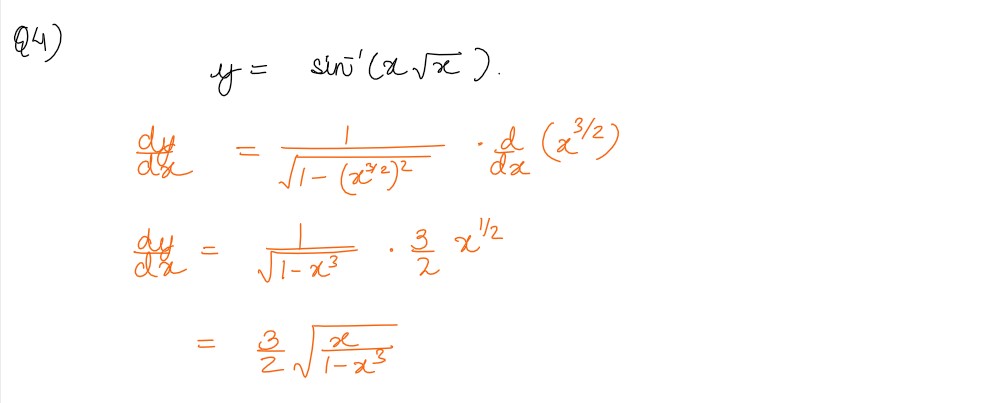 Q4)
y = sin⁻¹(x√x).
dy/dx = 1/√(1-(x^3/2)²) · d/dx (x^3/2)
dy/dx = 1/√(1-x³) · 3/2 x^1/2
= 3/2 √(x/(1-x³))